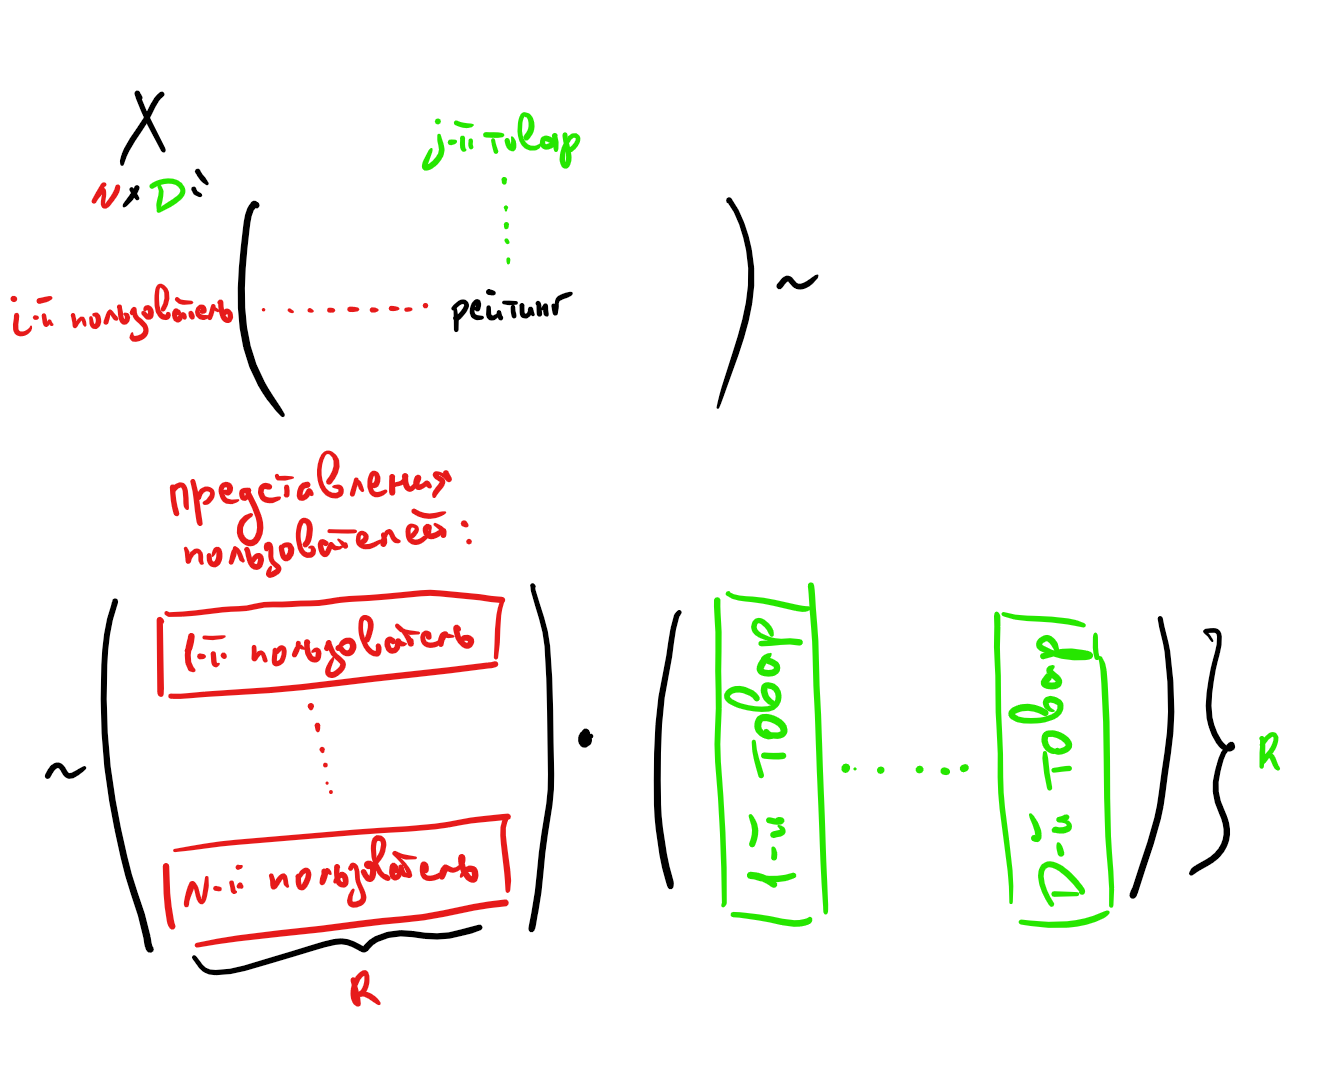 X
N × D
j-й товар
i-й пользователь
рейтинг
~
представления
пользователей:
~
1-й пользователь
N-й пользователь
R
•
1-й товар
D-й товар
R